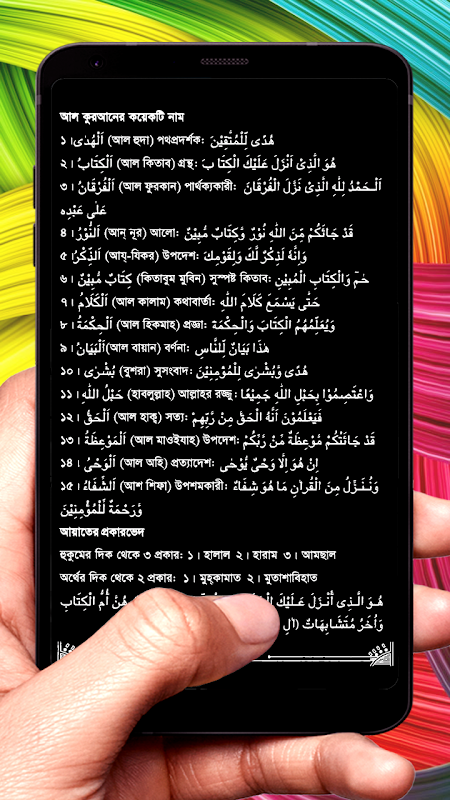 আল কুরআনের কয়েকটি নাম
১। اَلْهُدٰى (আল হুদা) পথপ্রদর্শক: هُدًى لِّلْمُتَّقِيْنَ
২। اَلْكِتَابُ (আল কিতাব) গ্রন্থ: هُوَ الَّذِىْ اَنْزَلَ عَلَيْكَ الْكِتَا بَ
৩। اَلْفُرْقَانُ (আল ফুরকান) পার্থক্যকারী: اَلْحَمْدُ لِلّٰهِ الَّذِىْ نَزَّلَ الْفُرْقَانَ
عَلٰى عَبْدِه
৪। اَلنُّوْرُ (আন্ নূর) আলো: قَدْ جَائَكُمْ مِّنَ اللّٰهِ نُوْرٌ وَّكِتَابٌ مُّبِيْنٌ
৫। اَلذِّكْرُ (আয্-যিকর) উপদেশ: وَاِنَّهٗ لَذِكْرٌ لَّكَ وَلِقَوْمِكَ
৬। كِتَابٌ مُّبِيْنٌ (কিতাবুম মুবিন) সুস্পষ্ট কিতাব: حٰمٓ وَالْكِتَابِ الْمُبِيْنِ
৭। اَلْكَلَامُ (আল কালাম) কথাবার্তা: حَتّٰى يَسْمَعَ كَلَامَ اللّٰهِ
৮। اَلْحِكْمَةُ (আল হিকমাহ) প্রজ্ঞা: وَيُعَلِّمُهُمُ الْكِتَابَ وَالْحِكْمَةَ
৯। اَلْبَيَانُ (আল বায়ান) বর্ণনা: هٰذَا بَيَانٌ لِّلنَّاسِ
১০। بُشْرٰى (বুশরা) সুসংবাদ: هُدًى وَّبُشْرٰى لِلْمُؤْمِنِيْنَ
১১। حَبْلُ اللّٰهِ (হাবলুল্লাহ) আল্লাহর রজ্জু: وَاعْتَصِمُوْا بِحَبْلِ اللّٰهِ جَمِيْعًا
১২। اَلْحَقُّ (আল হাক্ব) সত্য: فَيَعْلَمُوْنَ اَنَّهُ الْحَقُّ مِنْ رَّبِّهِمْ
১৩। اَلْمَوْعِظَةُ (আল মাওইযাহ) উপদেশ: قَدْ جَائَتْكُمْ مَوْعِظَةٌ مِّنْ رَّبِّكُمْ
১৪। اَلْوَحْىُ (আল অহি) প্রত্যাদেশ: اِنْ هُوَ اِلَّا وَحْىٌ يُّوْحٰى
১৫। اَلشِّفَاءُ (আশ শিফা) উপশমকারী: وَنُنَزِّلُ مِنَ الْقُرْاٰنِ مَا هُوَ شِفَاءٌ
وَّرَحْمَةٌ لِّلْمُؤْمِنِيْنَ
আয়াতের প্রকারভেদ
হুকুমের দিক থেকে ৩ প্রকার: ১। হালাল ২। হারাম ৩। আমছাল
অর্থের দিক থেকে ২ প্রকার: ১। মুহ্কামাত ২। মুতাশাবিহাত
هُوَ الَّذِى أَنْزَلَ عَلَيْكَ هُنَّ أُمُّ الْكِتَابِ
وَأُخَرُ مُتَشَابِهَاتٌ